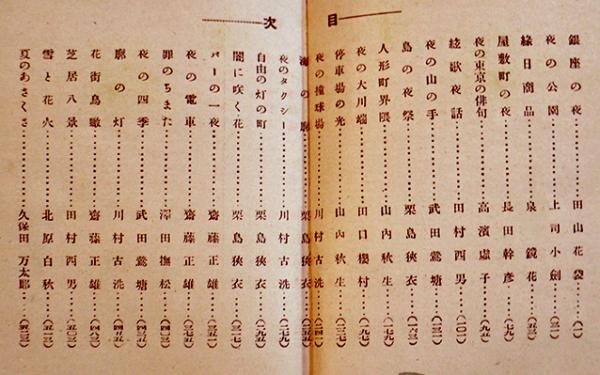 目次
銀座の夜 田山花袋 (一)
夜の公園 上司小劍 (三一)
緣日商品 泉鏡花 (五三)
屋敷町の夜 長田幹彥 (七九)
夜の東京の俳句 高濱虛子 (九五)
絃歌夜話 田村西男 (一〇一)
夜の山の手 武田鶯塘
島の夜祭 栗島狹衣 (一六三)
人形町界隈 山內秋生 (一七九)
夜の大川端 田口櫻村 (一九七)
停車場の光 山內秋生
夜の撞球場 川村古洗 (二四一)
海の 栗島狹衣
夜のタクシー 川村古洗 (二七九)
自由の灯の町 栗島狹衣 (二九五)
闇に吹く花 栗島狹衣 (三一七)
バーの一夜 齋藤正雄 (三五一)
夜の電車 齋藤正雄 (三七五)
罪のちまた 澤田撫松
夜の四季 武田鶯塘
廓の灯 川村古洗
花街鳥瞰 齋藤正雄 (四八三)
芝居八景 田村西男 (五〇三)
雪と花火 北原白秋 (五一三)
夏のあさくさ 久保田万太郎